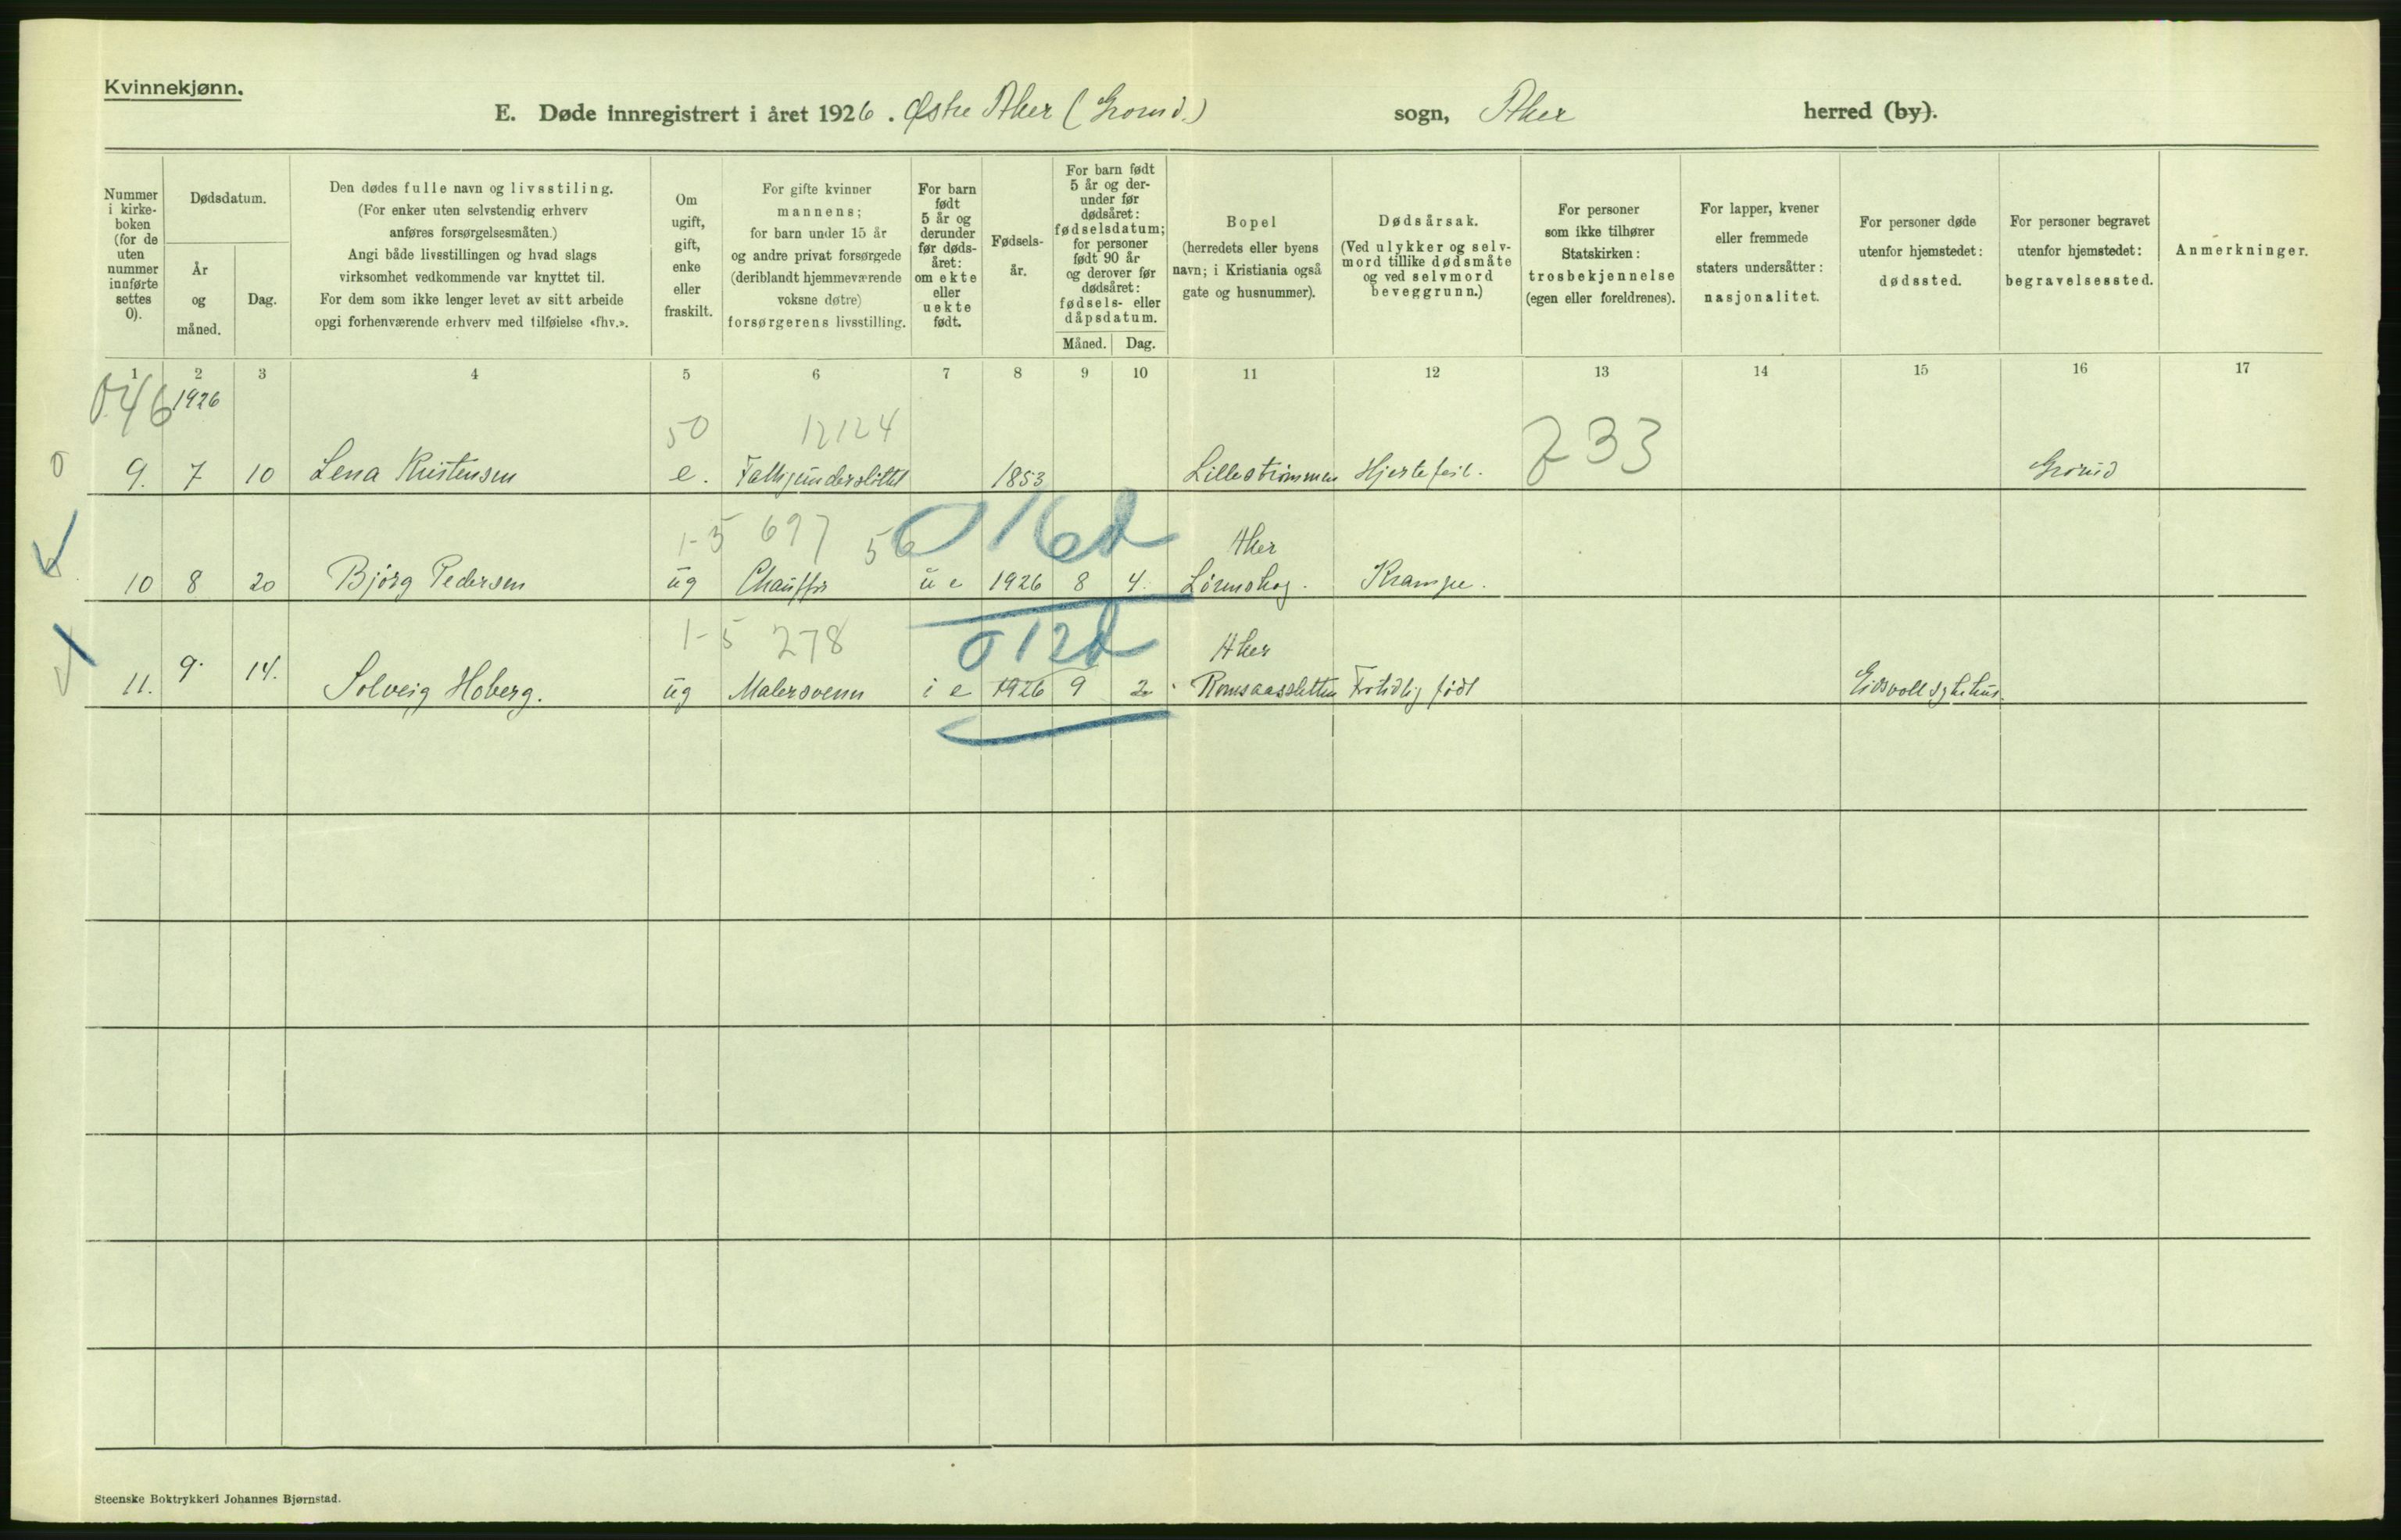 Kvinnekjønn.
E. Døde innregistrert i året 1926. Østre Aker (Grorud.) sogn, Aker herred (by).
Nummer i kirke-boken (for de uten nummer innførte settes 0).
Dødsdatum.
År og måned.
Dag.
Den dødes fulle navn og livsstiling.
(For enker uten selvstendig erhverv
anføres forsørgelsesmåten.)
Angi både livsstillingen og hvad slags
virksomhet vedkommende var knyttet til.
For dem som ikke lenger levet av sitt arbeide
opgi forhenværende erhverv med tilføielse «fhv.».
Om ugift, gift, enke eller fraskilt.
For gifte kvinner
mannens;
for barn under 15 år
og andre privat forsørgede
(deriblandt hjemmeværende
voksne døtre)
forsørgerens livsstilling.
For barn født 5 år og derunder før døds-året: om ekte eller uekte født.
Fødsels-år.
For barn født
5 år og der-
under før
dødsåret:
fødselsdatum;
for personer
født 90 år
og derover før
dødsåret:
fødsels- eller
dåpsdatum.
Måned. Dag.
Bopel
(herredets eller byens
navn; i Kristiania også
gate og husnummer).
Dødsårsak.
(Ved ulykker og selv-
mord tillike dødsmåte
og ved selvmord
beveggrunn.)
For personer
som ikke tilhører
Statskirken:
trosbekjennelse
(egen eller foreldrenes).
For lapper, kvener
eller fremmede
staters undersåtter:
nasjonalitet.
For personer døde
utenfor hjemstedet:
dødssted.
For personer begravet
utenfor hjemstedet:
begravelsessted.
Anmerkninger.
1 2 3 4 5 6 7 8 9 10 11 12 13 14 15 16 17
046 1926
50 12124 233
0 9. 7 10 Lena Kristensen e. 1853 Lillestrømmen Hjertefeil. Grorud
1-5 697 56 0 16d Aker
10 8 20 Bjørg Pedersen ug Chauffør u e 1926 8 4. Lørenskog. Krampe.
1-5 278 0 12d Aker
11. 9. 14. Solveig Hoberg. ug Malersvenn i e 1926 9 2 Romsaassletten Fortidlig født Eidsvoll sykehus.
Steenske Boktrykkeri Johannes Bjørnstad.